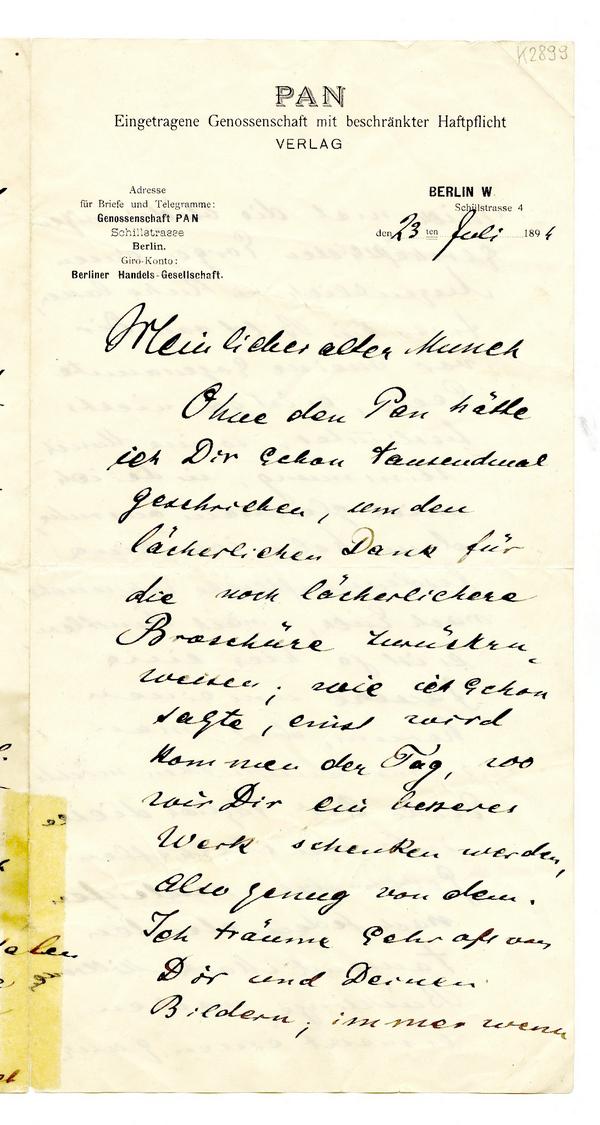 K2899
PAN
Eingetragene Genossenschaft mit beschränkter Haftpflicht
VERLAG
Adresse
für Briefe und Telegramme:
Genossenschaft PAN
Schillstrasse
Berlin.
Giro-Konto:
Berliner Handels-Gesellschaft.
BERLIN W.
Schillstrasse 4
den 23 ten Juli 1894
Mein lieber alter Munch
Ohne den Pan hätte
ich Dir schon tausendmal
geschrieben, um den
lächerlichen Dank für
die noch lächerlichere
Broschüre zurückzu-
weisen; wie ich schon
sagte, einst wird
kommen der Tag, wo
wir Dir ein besseres
Werk schenken werden,
also genug von dem.
Ich träume sehr oft von
Dir und Deinen
Bildern; immer wenn